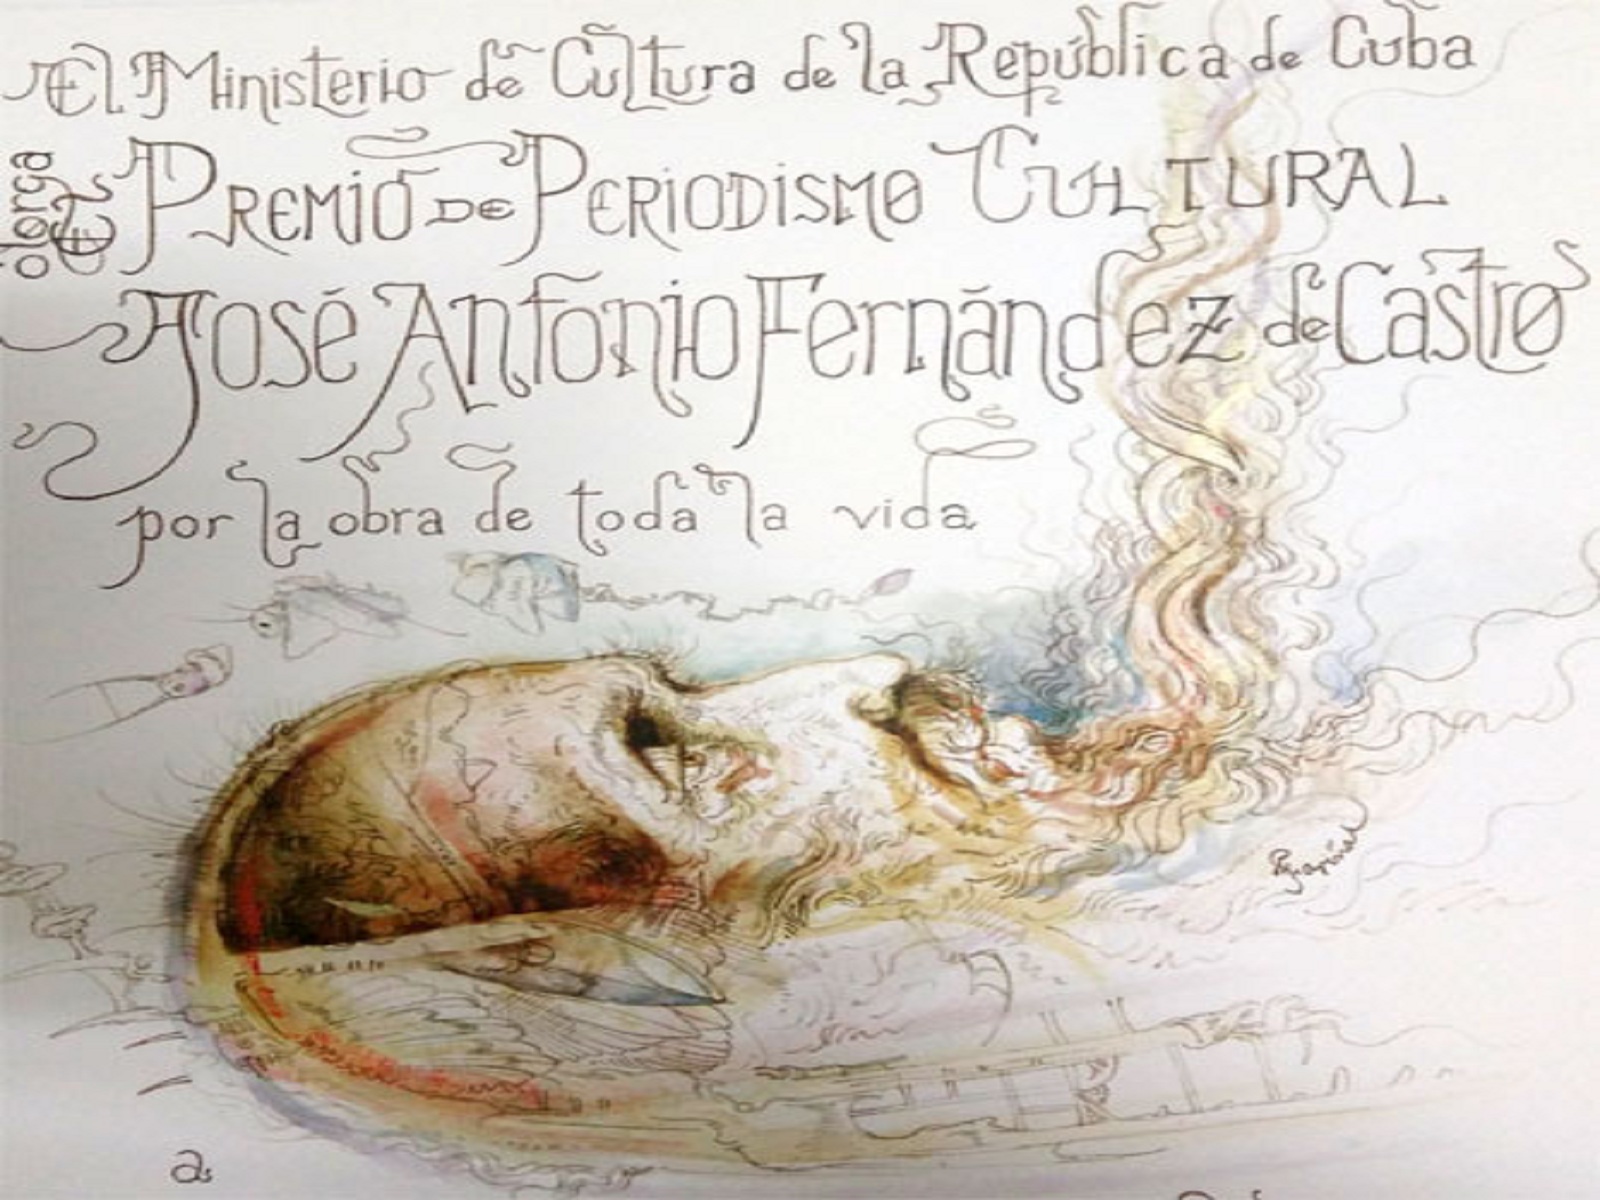 El Ministerio de Cultura de la República de Cuba
otorga EL
Premio de Periodismo Cultural
José Antonio Fernández de Castro
por la obra de toda la vida
a